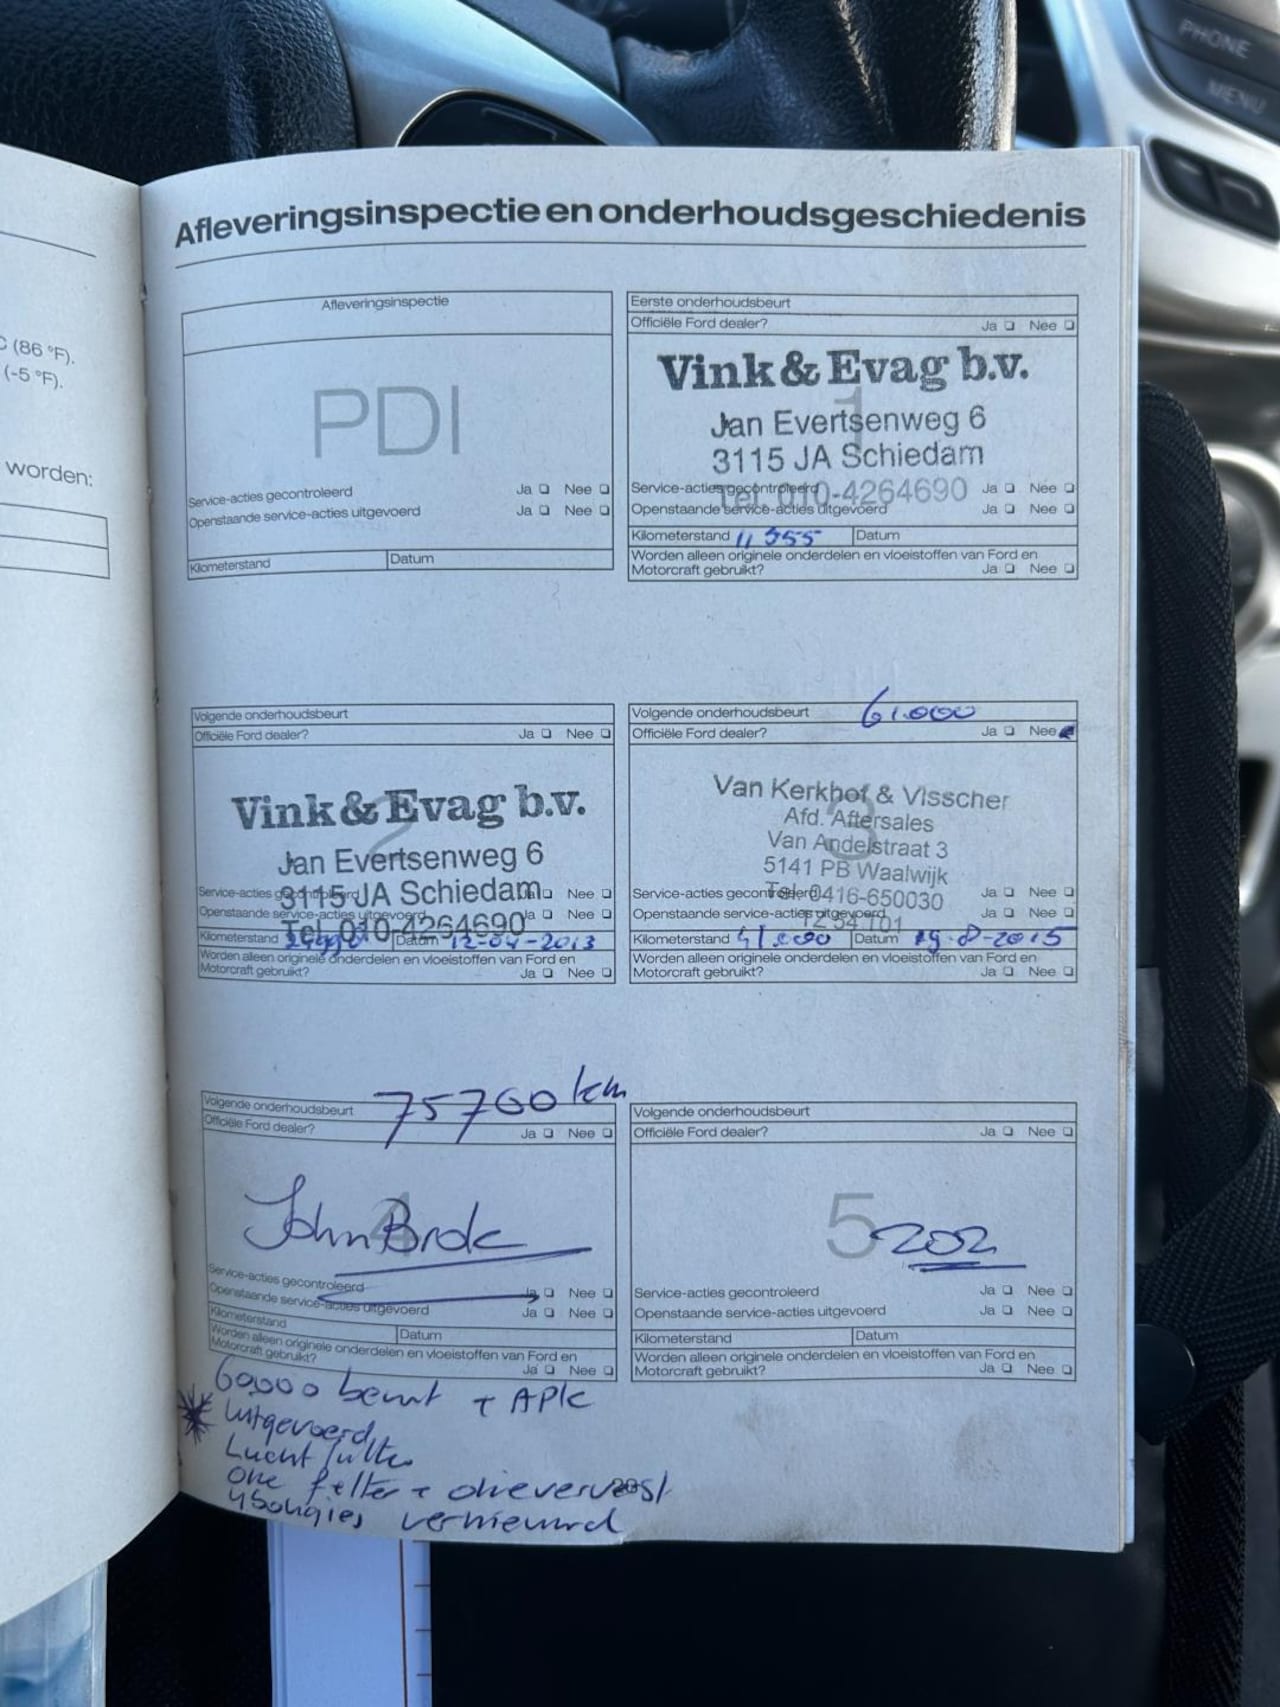 PHONE
MENU
C (86 °F).
(-5 °F).
worden:
Afleveringsinspectie en onderhoudsgeschiedenis
Afleveringsinspectie
PDI
Service-acties gecontroleerd Ja Nee
Openstaande service-acties uitgevoerd Ja Nee
Kilometerstand Datum
Eerste onderhoudsbeurt
Officiële Ford dealer? Ja Nee
1
Vink & Evag b.v.
Jan Evertsenweg 6
3115 JA Schiedam
Tel. 010-4264690
Service-acties gecontroleerd Ja Nee
Openstaande service-acties uitgevoerd Ja Nee
Kilometerstand 11 355 Datum
Worden alleen originele onderdelen en vloeistoffen van Ford en
Motorcraft gebruikt? Ja Nee
Volgende onderhoudsbeurt
Officiële Ford dealer? Ja Nee
2
Vink & Evag b.v.
Jan Evertsenweg 6
3115 JA Schiedam
Tel. 010-4264690
Service-acties gecontroleerd Ja Nee
Openstaande service-acties uitgevoerd Ja Nee
Kilometerstand Datum 12-04-2013
Worden alleen originele onderdelen en vloeistoffen van Ford en
Motorcraft gebruikt? Ja Nee
Volgende onderhoudsbeurt 61.000
Officiële Ford dealer? Ja Nee
3
Van Kerkhof & Visscher
Afd. Aftersales
Van Andelstraat 3
5141 PB Waalwijk
Tel. 0416-650030
Service-acties gecontroleerd Ja Nee
Openstaande service-acties uitgevoerd Ja Nee
Kilometerstand Datum 19-8-2015
Worden alleen originele onderdelen en vloeistoffen van Ford en
Motorcraft gebruikt? Ja Nee
Volgende onderhoudsbeurt 75700 km
Officiële Ford dealer? Ja Nee
4
John Brok
Service-acties gecontroleerd Ja Nee
Openstaande service-acties uitgevoerd Ja Nee
Kilometerstand Datum
Worden alleen originele onderdelen en vloeistoffen van Ford en
Motorcraft gebruikt? Ja Nee
60.000 beurt + APK
uitgevoerd
Lucht filter
olie filter + olie ververst
4 Bougies vernieuwd
Volgende onderhoudsbeurt
Officiële Ford dealer? Ja Nee
5
202
Service-acties gecontroleerd Ja Nee
Openstaande service-acties uitgevoerd Ja Nee
Kilometerstand Datum
Worden alleen originele onderdelen en vloeistoffen van Ford en
Motorcraft gebruikt? Ja Nee